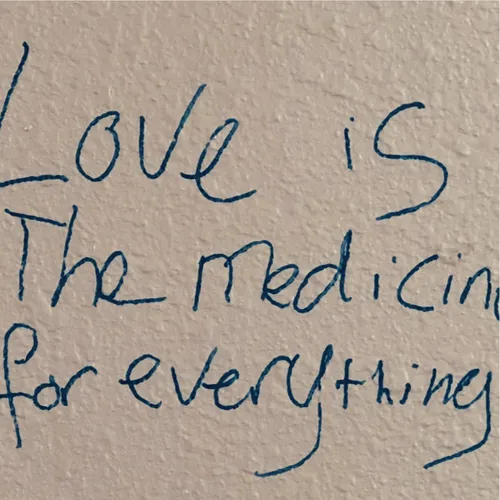 Love is
The medicin
for everything